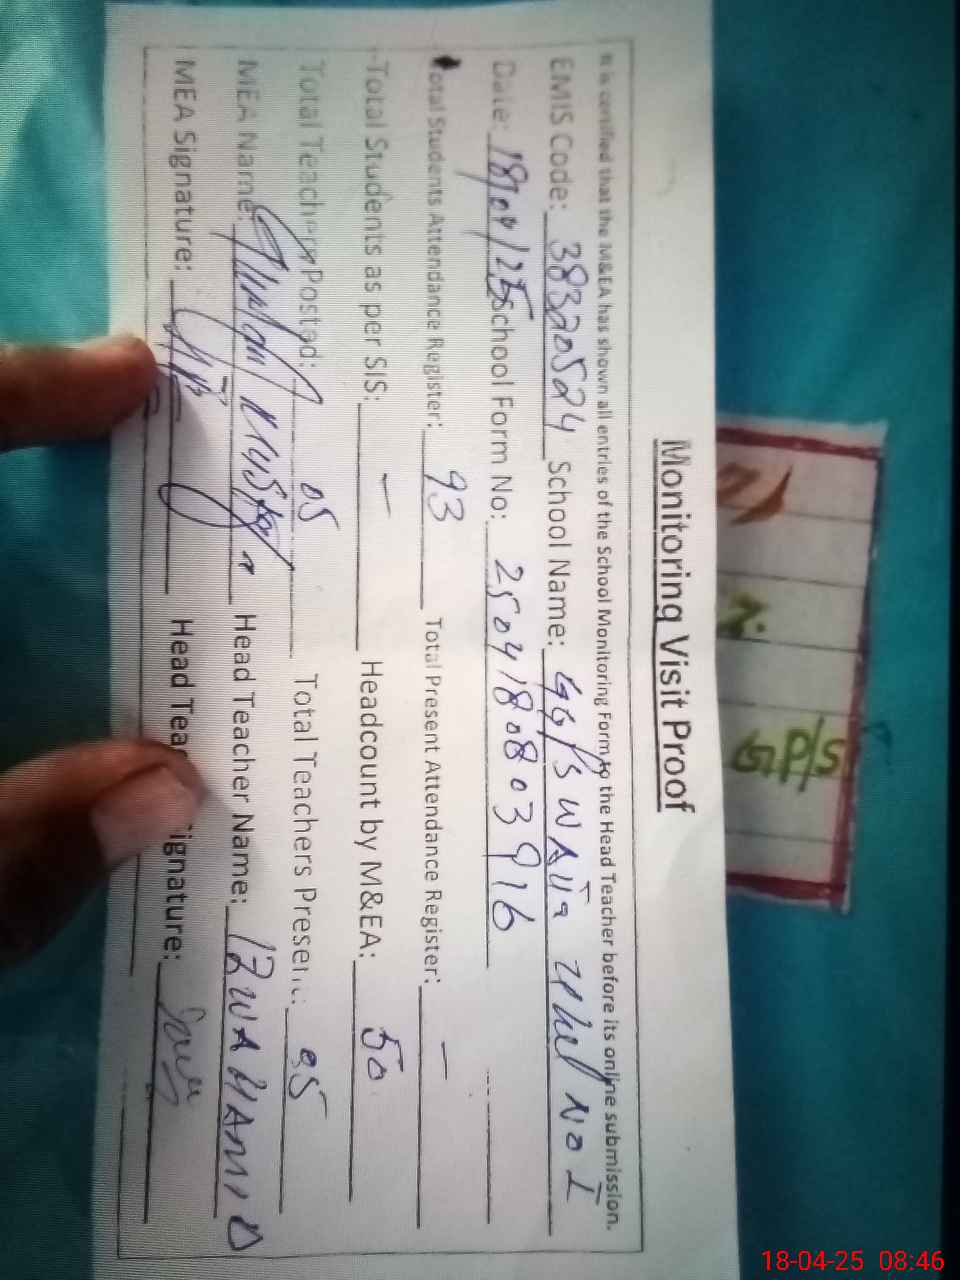 Monitoring Visit Proof
It is certified that the M&EA has shown all entries of the School Monitoring Form to the Head Teacher before its online submission.
EMIS Code: 38320524 School Name: GG/PS No I
Date: 18/04/25 School Form No: 2504180803916
Total Students Attendance Register: 93 Total Present Attendance Register: —
Total Students as per SIS: — Headcount by M&EA: 50
Total Teachers Posted: 05 Total Teachers Present: 05
MEA Name: Head Teacher Name: HAMID
MEA Signature: Head Teac ignature:
GP/S
18-04-25 08:46